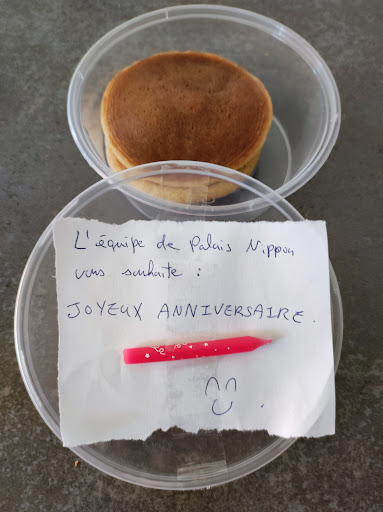 L'équipe de Palais Nippon
vous souhaite :
JOYEUX ANNIVERSAIRE.